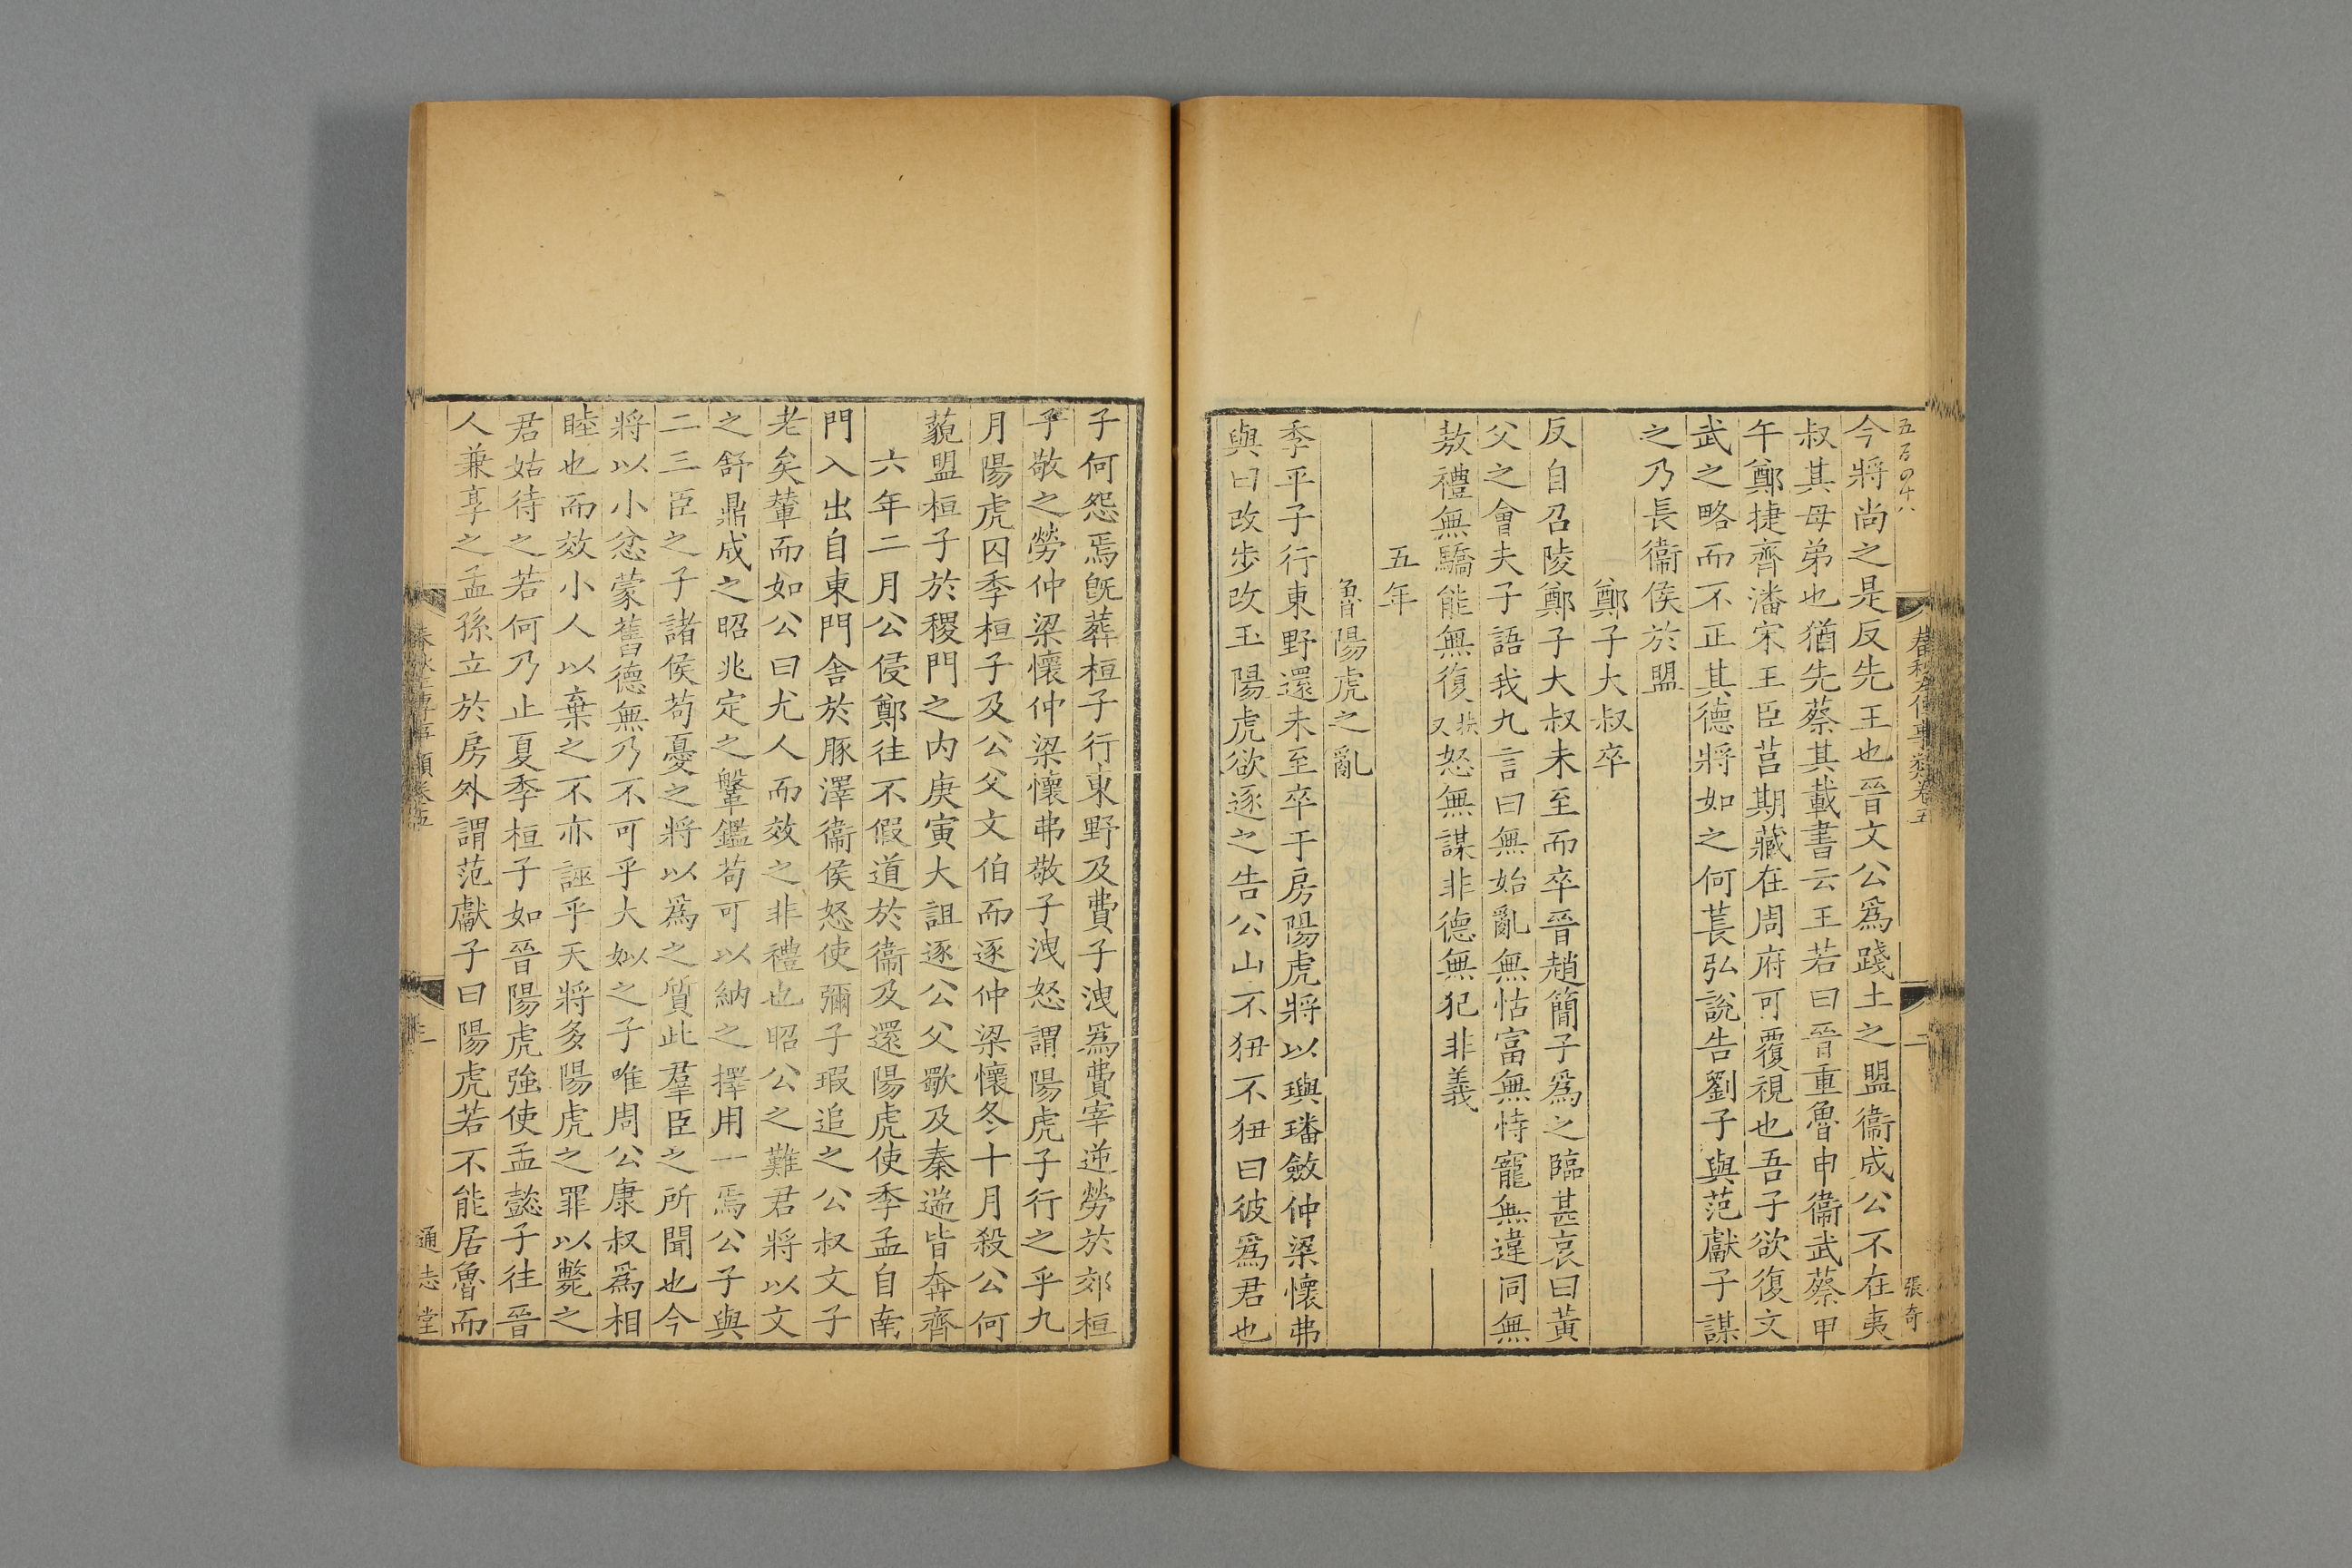 五百四十八
春秋左傳事類卷五
二
張奇
今將尚之是反先王也晉文公爲踐土之盟衞成公不在夷
叔其母弟也猶先蔡其載書云王若曰晉重魯申衞武蔡甲
午鄭捷齊潘宋王臣莒期藏在周府可覆視也吾子欲復文
武之略而不正其德將如之何萇弘說告劉子與范獻子謀
之乃長衞侯於盟
鄭子大叔卒
反自召陵鄭子大叔未至而卒晉趙簡子爲之臨甚哀曰黃
父之會夫子語我九言曰無始亂無怙富無恃寵無違同無
敖禮無驕能無復扶又怒無謀非德無犯非義
五年
魯陽虎之亂
季平子行東野還未至卒于房陽虎將以璵璠斂仲梁懷弗
與曰改步改玉陽虎欲逐之告公山不狃不狃曰彼爲君也
子何怨焉旣葬桓子行東野及費子洩爲費宰逆勞於郊桓
子敬之勞仲梁懷仲梁懷弗敬子洩怒謂陽虎子行之乎九
月陽虎囚季桓子及公父文伯而逐仲梁懷冬十月殺公何
藐盟桓子於稷門之內庚寅大詛逐公父歜及秦遄皆奔齊
六年二月公侵鄭往不假道於衞及還陽虎使季孟自南
門入出自東門舍於豚澤衞侯怒使彌子瑕追之公叔文子
老矣輦而如公曰尤人而效之非禮也昭公之難君將以文
之舒鼎成之昭兆定之鞶鑑苟可以納之擇用一焉公子與
二三臣之子諸侯苟憂之將以爲之質此羣臣之所聞也今
將以小忿蒙舊德無乃不可乎大姒之子唯周公康叔爲相
睦也而效小人以棄之不亦誣乎天將多陽虎之罪以斃之
君姑待之若何乃止夏季桓子如晉陽虎強使孟懿子往晉
人兼享之孟孫立於房外謂范獻子曰陽虎若不能居魯而
春秋左傳事類卷五
三
通志堂